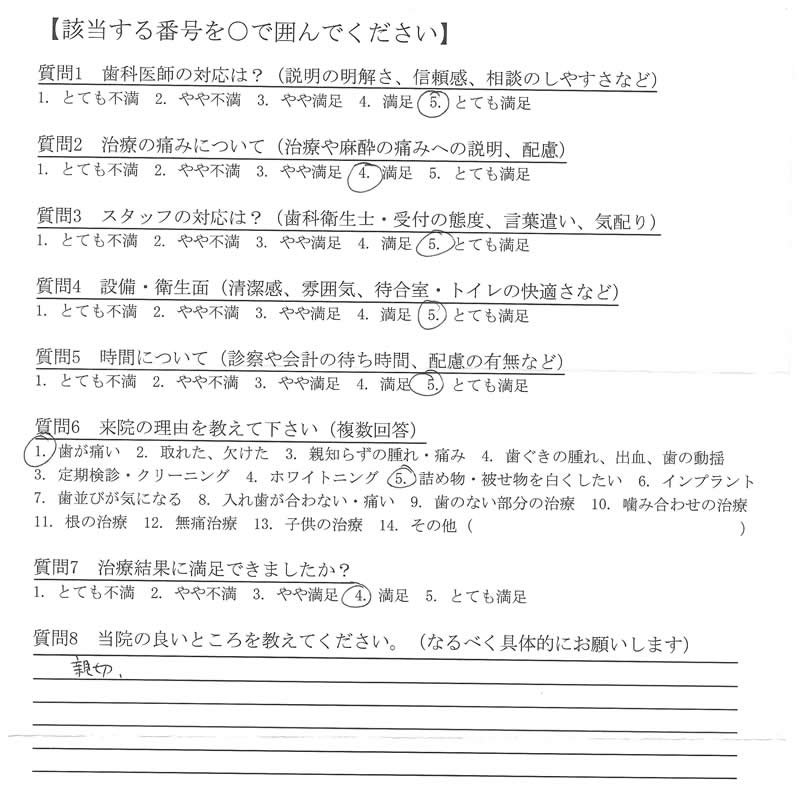 【該当する番号を○で囲んでください】
質問1 歯科医師の対応は？（説明の明解さ、信頼感、相談のしやすさなど）
1. とても不満 2. やや不満 3. やや満足 4. 満足 5. とても満足
質問2 治療の痛みについて（治療や麻酔の痛みへの説明、配慮）
1. とても不満 2. やや不満 3. やや満足 4. 満足 5. とても満足
質問3 スタッフの対応は？（歯科衛生士・受付の態度、言葉遣い、気配り）
1. とても不満 2. やや不満 3. やや満足 4. 満足 5. とても満足
質問4 設備・衛生面（清潔感、雰囲気、待合室・トイレの快適さなど）
1. とても不満 2. やや不満 3. やや満足 4. 満足 5. とても満足
質問5 時間について（診察や会計の待ち時間、配慮の有無など）
1. とても不満 2. やや不満 3. やや満足 4. 満足 5. とても満足
質問6 来院の理由を教えて下さい（複数回答）
1. 歯が痛い 2. 取れた、欠けた 3. 親知らずの腫れ・痛み 4. 歯ぐきの腫れ、出血、歯の動揺
3. 定期検診・クリーニング 4. ホワイトニング 5. 詰め物・被せ物を白くしたい 6. インプラント
7. 歯並びが気になる 8. 入れ歯が合わない・痛い 9. 歯のない部分の治療 10. 噛み合わせの治療
11. 根の治療 12. 無痛治療 13. 子供の治療 14. その他（ ）
質問7 治療結果に満足できましたか？
1. とても不満 2. やや不満 3. やや満足 4. 満足 5. とても満足
質問8 当院の良いところを教えてください。（なるべく具体的にお願いします）
親切、